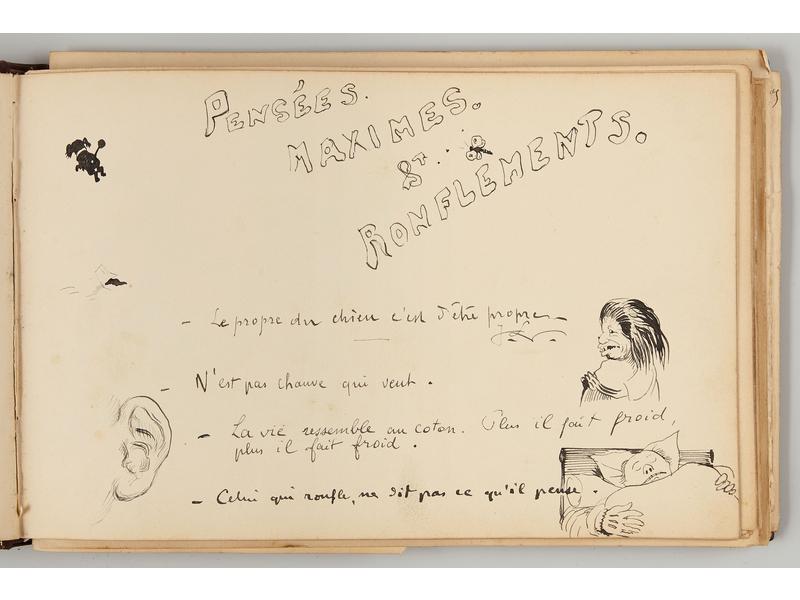 PENSÉES.
MAXIMES.
&
RONFLEMENTS.
- Le propre du chien c'est d'être propre -
- N'est pas chauve qui veut.
- La vie ressemble au coton. Plus il fait froid,
plus il fait froid.
- Celui qui ronfle, ne dit pas ce qu'il pense.